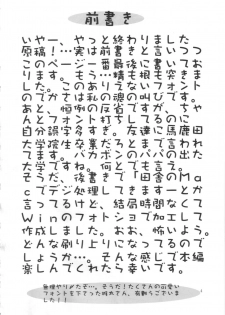 前書き
いやー、やっと終わりました
原稿！…実は前書きと言いつつ
このページ一番最後に書いてお
ります。もう…精も根も突きま
した。このありえないフォント
のでかさは私の魂の叫びです。
あと、恒例の反省ですが、ちゃ
んとフォント打ちしてるのに
自分誤字多すぎ。友達に馬鹿田
大学院生卒業だろとまで言われ
てます。バカボンのパパの出た
大学ですね。何とでも言うさ。
そうだ、後書きで「田舎のMa
cでデジ処理してきますーとか
言ってるけど、結局時間なくて
Winのフォトショで加工して
作成しました。おお、怖いよう。
どんな刷り上りになってるので
しょうか…。そんな感じで本編
楽しんでくれたら幸いです。
無理やり〆たぞ…。そうだ！たくさんの可愛い
フォントを下さった
有難うございま
した！！